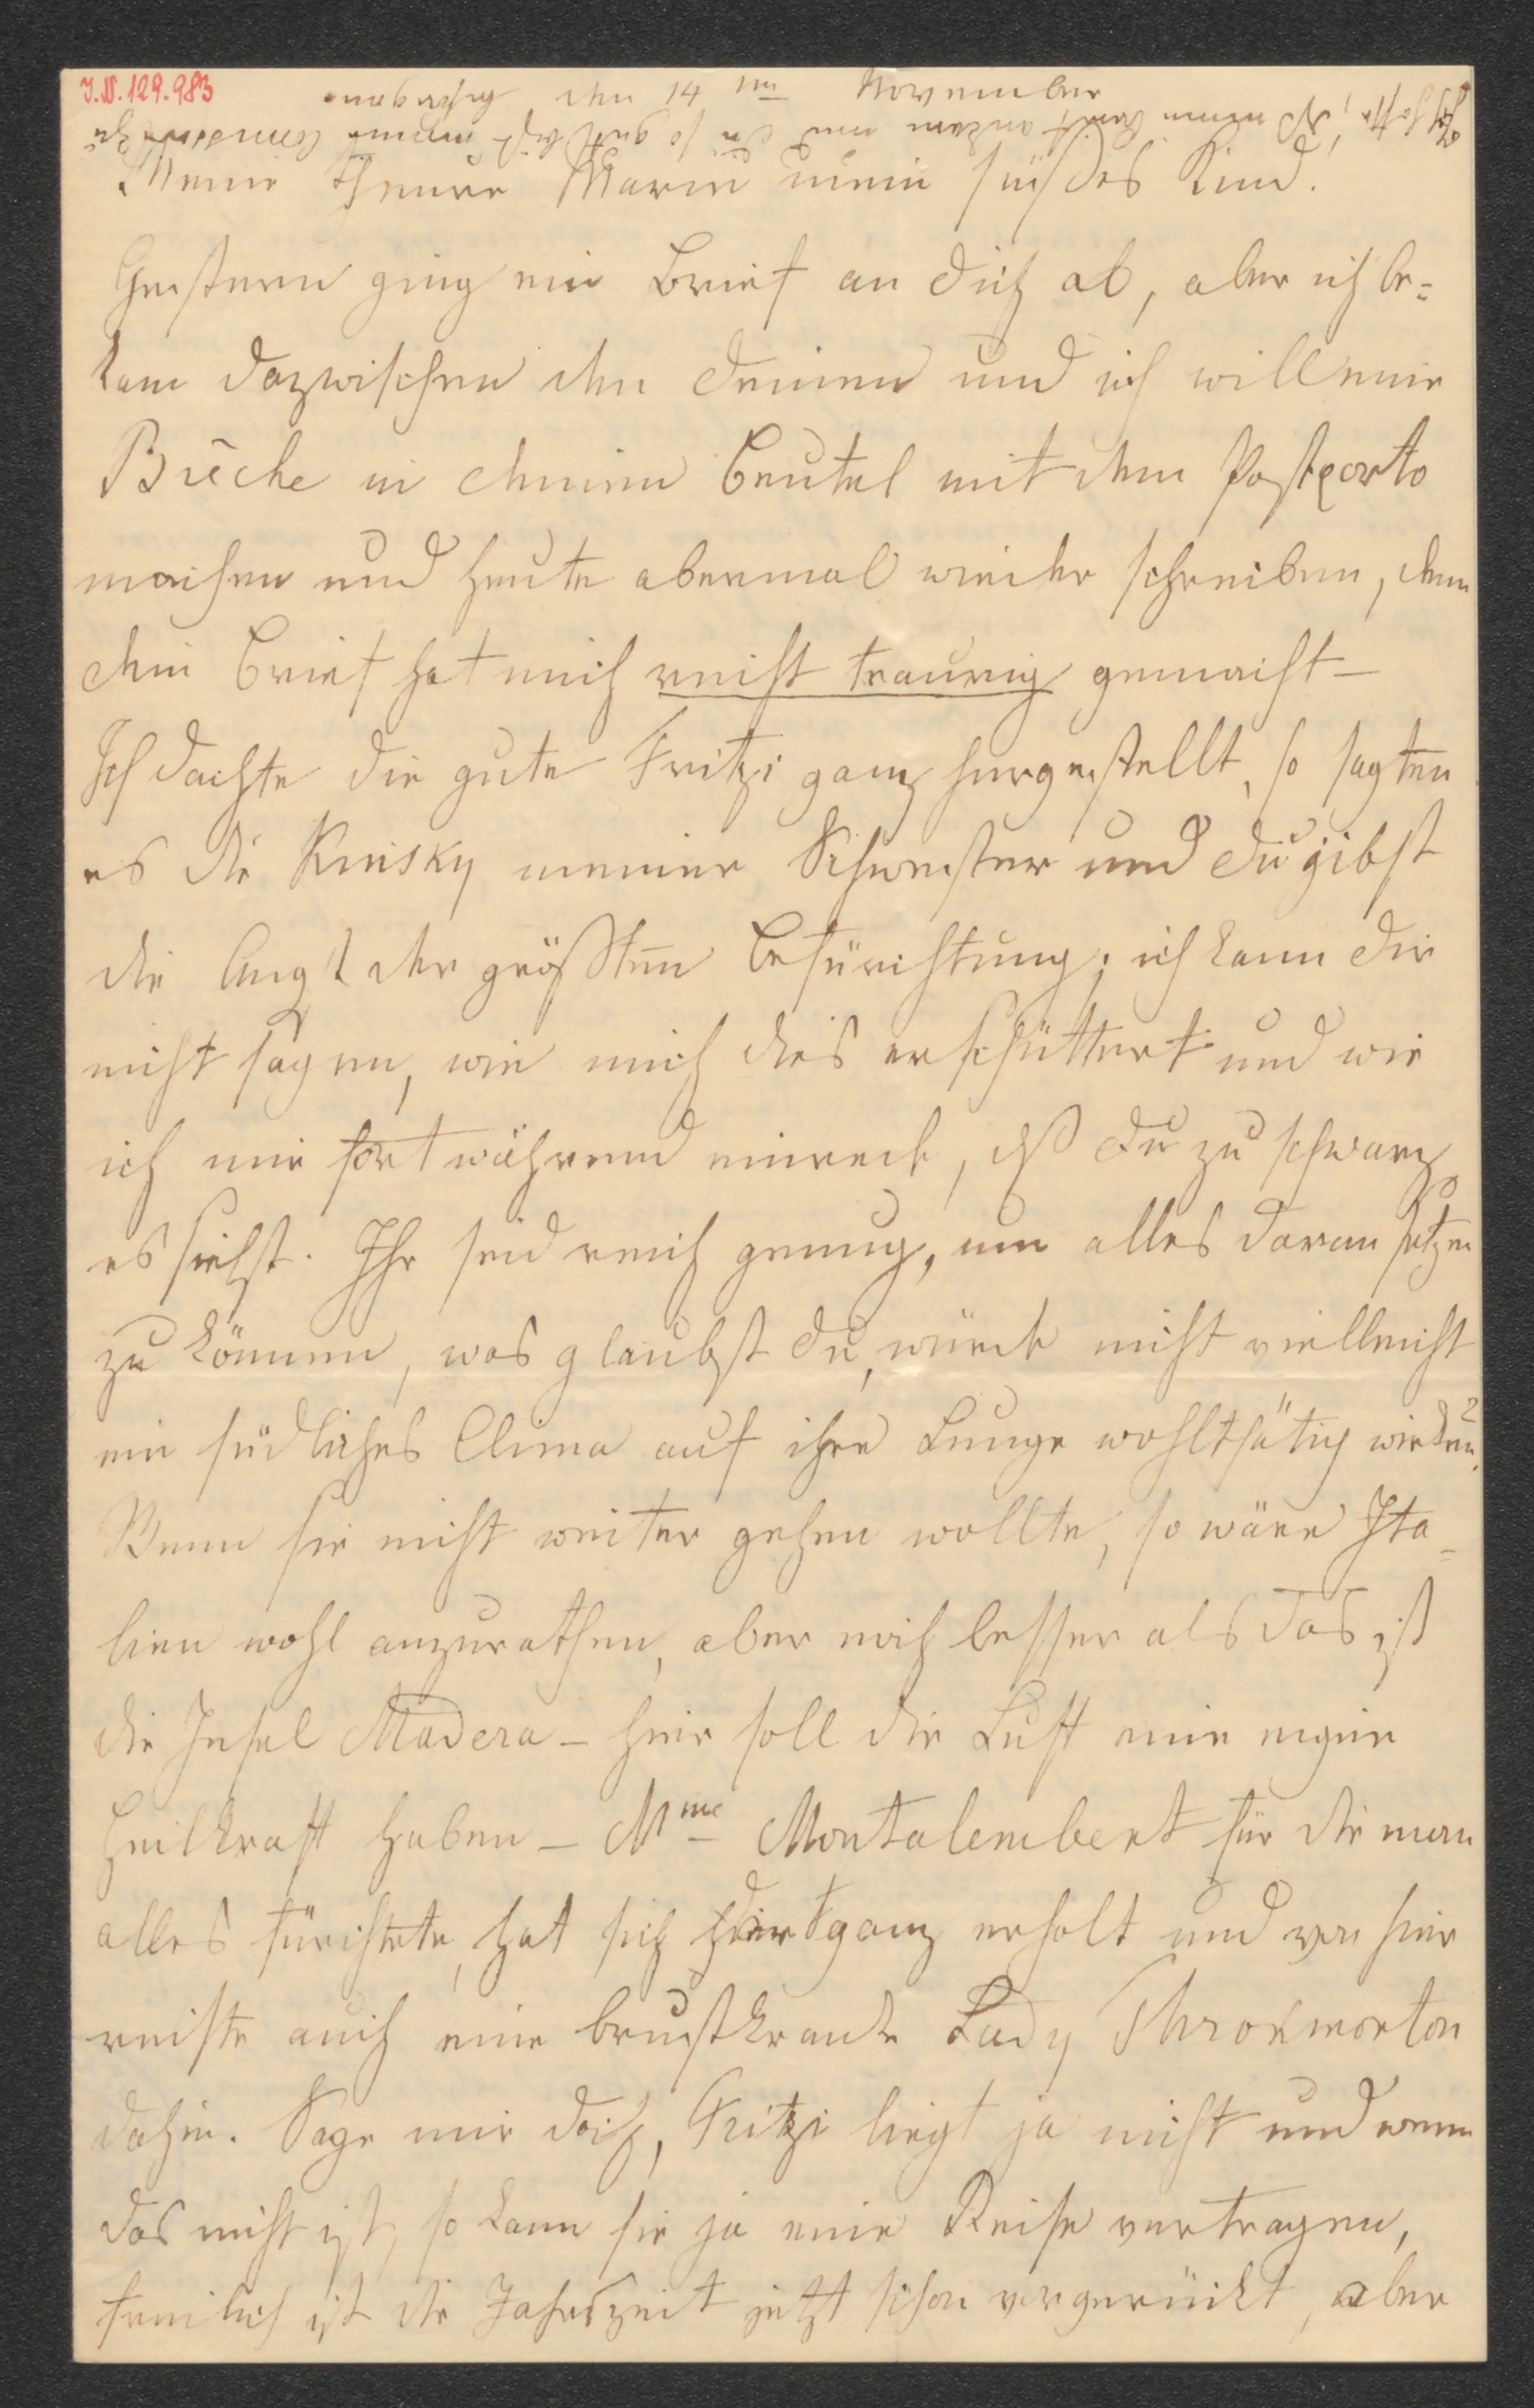 J.N. 129.983
Ich hoffe, daß meine Karte ankam und du so gut bist meine Commission zu
besorgen. den 14ten November
Meine theure Marie mein süßes Kind.
Gestern ging ein Brief an dich ab, aber ich be=
kam dazwischen den deinen und ich will eine
Brêche in deinen Beutel mit dem Postporto
machen und heute abermal wieder schreiben, denn
dein Brief hat mich recht traurig gemacht –
Ich dachte die gute Fritzi ganz hergestellt, so sagten
es die Kinsky meiner Schwester und du gibst
die Angst der größten Befürchtung; ich kann dir
nicht sagen, wie mich dies erschüttert und wie
ich mir fortwährend einrede, daß du zu schwarz
es siehst. Ihr seid reich genug, um alles daran setzen
zu können, was glaubst du, würde nicht vielleicht
ein südliches Clima auf ihre Lunge wohlthätig wirken?
Wenn sie nicht weiter gehen wollte, so wäre Ita=
lien wohl anzurathen, aber noch besser als das ist
die Insel Madera – hier soll die Luft eine eigene
Heilkraft haben – Mme Montalembert für die man
alles fürchtete, hat sich dort ganz erholt und von hier
reiste auch eine brustkranke Lady Throkmorton
dahin. Sage mir doch, Fritzi liegt ja nicht und wenn
das nicht ist, so kann sie ja eine Reise vertragen,
freilich ist die Jahrszeit jetzt schon vorgerückt, aber